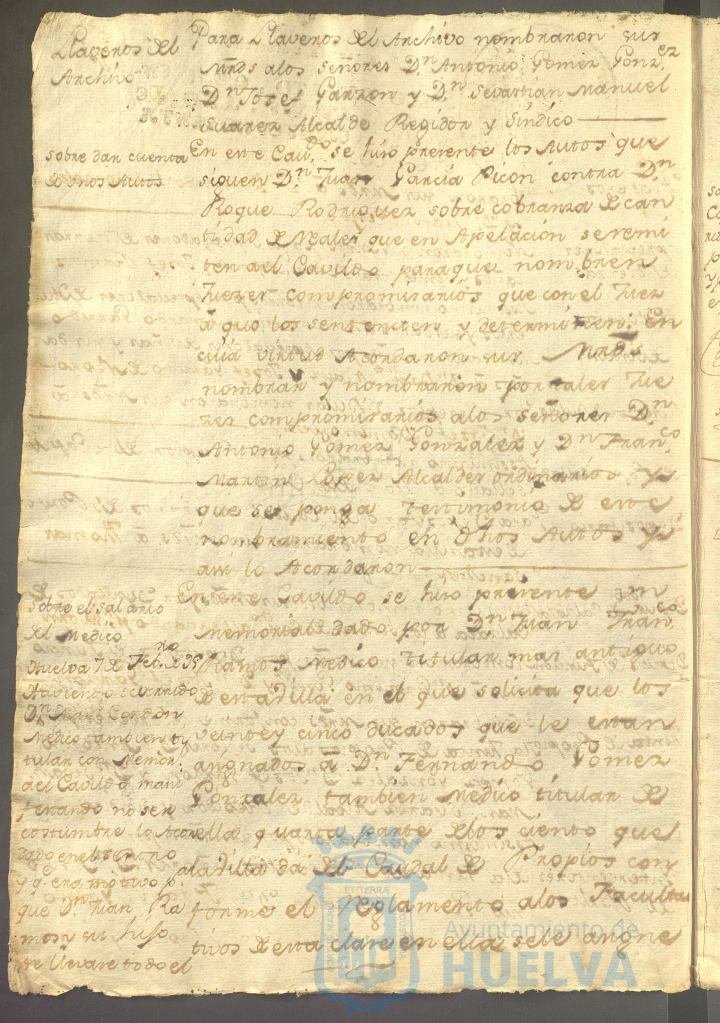 Llaveros del
Archivo
Para Llaveros del Archivo nombraron sus
Mrds alos señores Dn Antonio Gomez Gonzez
Dn Josef Garzon y Dn Sevastian Manuel
Suarez Alcalde Regidor y Sindico
sobre dar cuenta
de unos Autos
En este Cavdo se hizo presente los Autos que
siguen Dn Juan Garcia Picon contra Dn
Roque Rodriguez sobre cobranza de can
tidad de Reales que en Apelacion se remi
ten ael Cavildo para que nombren
Juezes compromisarios que con el Juez
a quo los sentencien y determinen. En
cuia virtud Acordaron sus Mrds
nombrar y nombraron por tales Jue
zes compromisarios alos señores Dn
Antonio Gomez Gonzalez y Dn Franco
Martin Lopez Alcaldes ordinarios y
que se ponga testimonio de este
nombramiento en dhos Autos y
asi lo Acordaron
sobre el salario
del Medico
En este Cavildo se hizo presente un
Memorial dado por Dn Juan Franco
Ramos Medico titular mas antiguo
de esta Villa en el que solicita que los
veinte y cinco ducados que le estan
asignados a Dn Fernando Gomez
Gonzalez tambien Medico titular de
ella quarta parte de los ciento que
ala Villa da el Caudal de Propios con
forme el Reglamento alos Faculta
tivos de esta clase en ella se le asigne
Huelva 7 de Febro de
Haviendo ocurrido
Dn
Medico tambien ti
tular con Memorl
ael Cavildo mani
festando no ser
costumbre lo Acor
dado en el
y q era motivo pa
que Dn Juan Ra
mos y su hijo
se llevare todo el
Ayuntamiento de
HUELVA